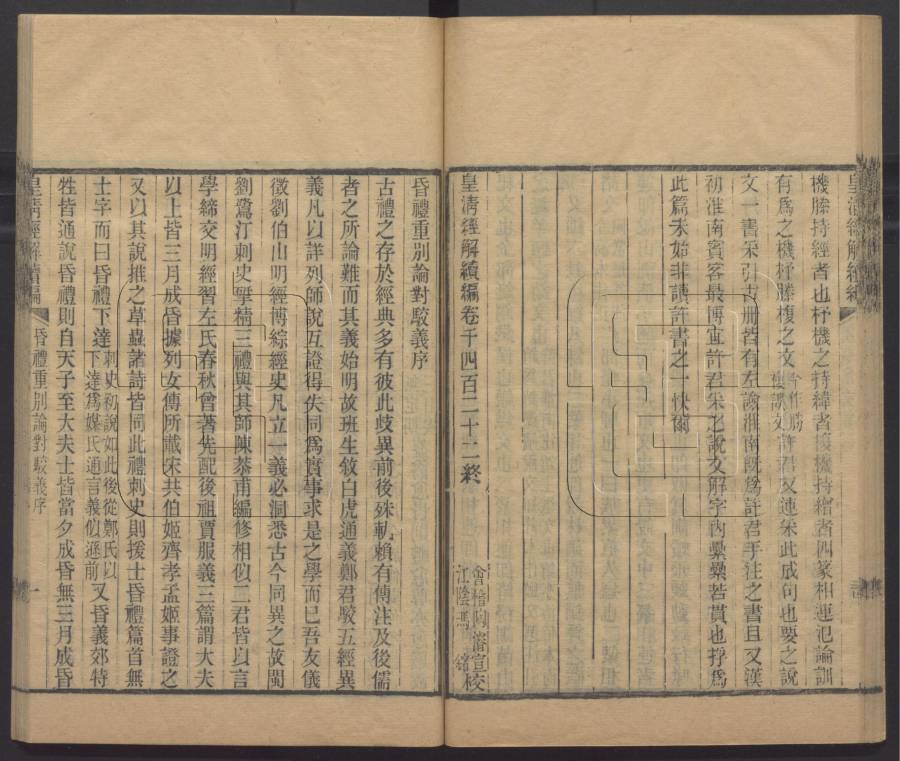 皇清經解續編
機縢持經者也杼機之持緯者㮃機持繒者四篆相連氾論訓
有爲之機杼縢複之文今作勝複誤文許君友連采此成句也要之說
文一書采引古册皆有左諗淮南旣爲許君手注之書且又漢
初淮南賓客最博宜許君采之說文解字內纍纍若貫也挣爲
此篇未始非讀許書之一快爾
皇淸經解續編卷千四百二十二終
會稽陶濬宣校
江陰馮銘
昏禮重別論對駮義序
古禮之存於經典多有彼此歧異前後殊軌賴有傳注及後儒
者之所論難而其義始明故班生敘白虎通義鄭君駮五經異
義凡以詳列師說互證得失同爲實事求是之學而巳吾友儀
徵劉伯山明經博綜經史凡立一義必洞悉古今同異之故閩
劉鷺汀刺史揅精三禮與其師陳恭甫編修相似二君皆以言
學締交明經習左氏春秋曾著先配後祖賈服義三篇謂大夫
以上皆三月成昏據列女傳所載宋共伯姬齊孝孟姬事證之
又以其說推之草蟲諸詩皆同此禮刺史則援士昏禮篇首無
士字而曰昏禮下達刺史初說如此後從鄭氏以下達爲媒氏通言義似遜前又昏義郊特
牲皆通說昏禮則自天子至大夫士皆當夕成昏無三月成昏
皇清經解續編
昏禮重別論對駮義序
一